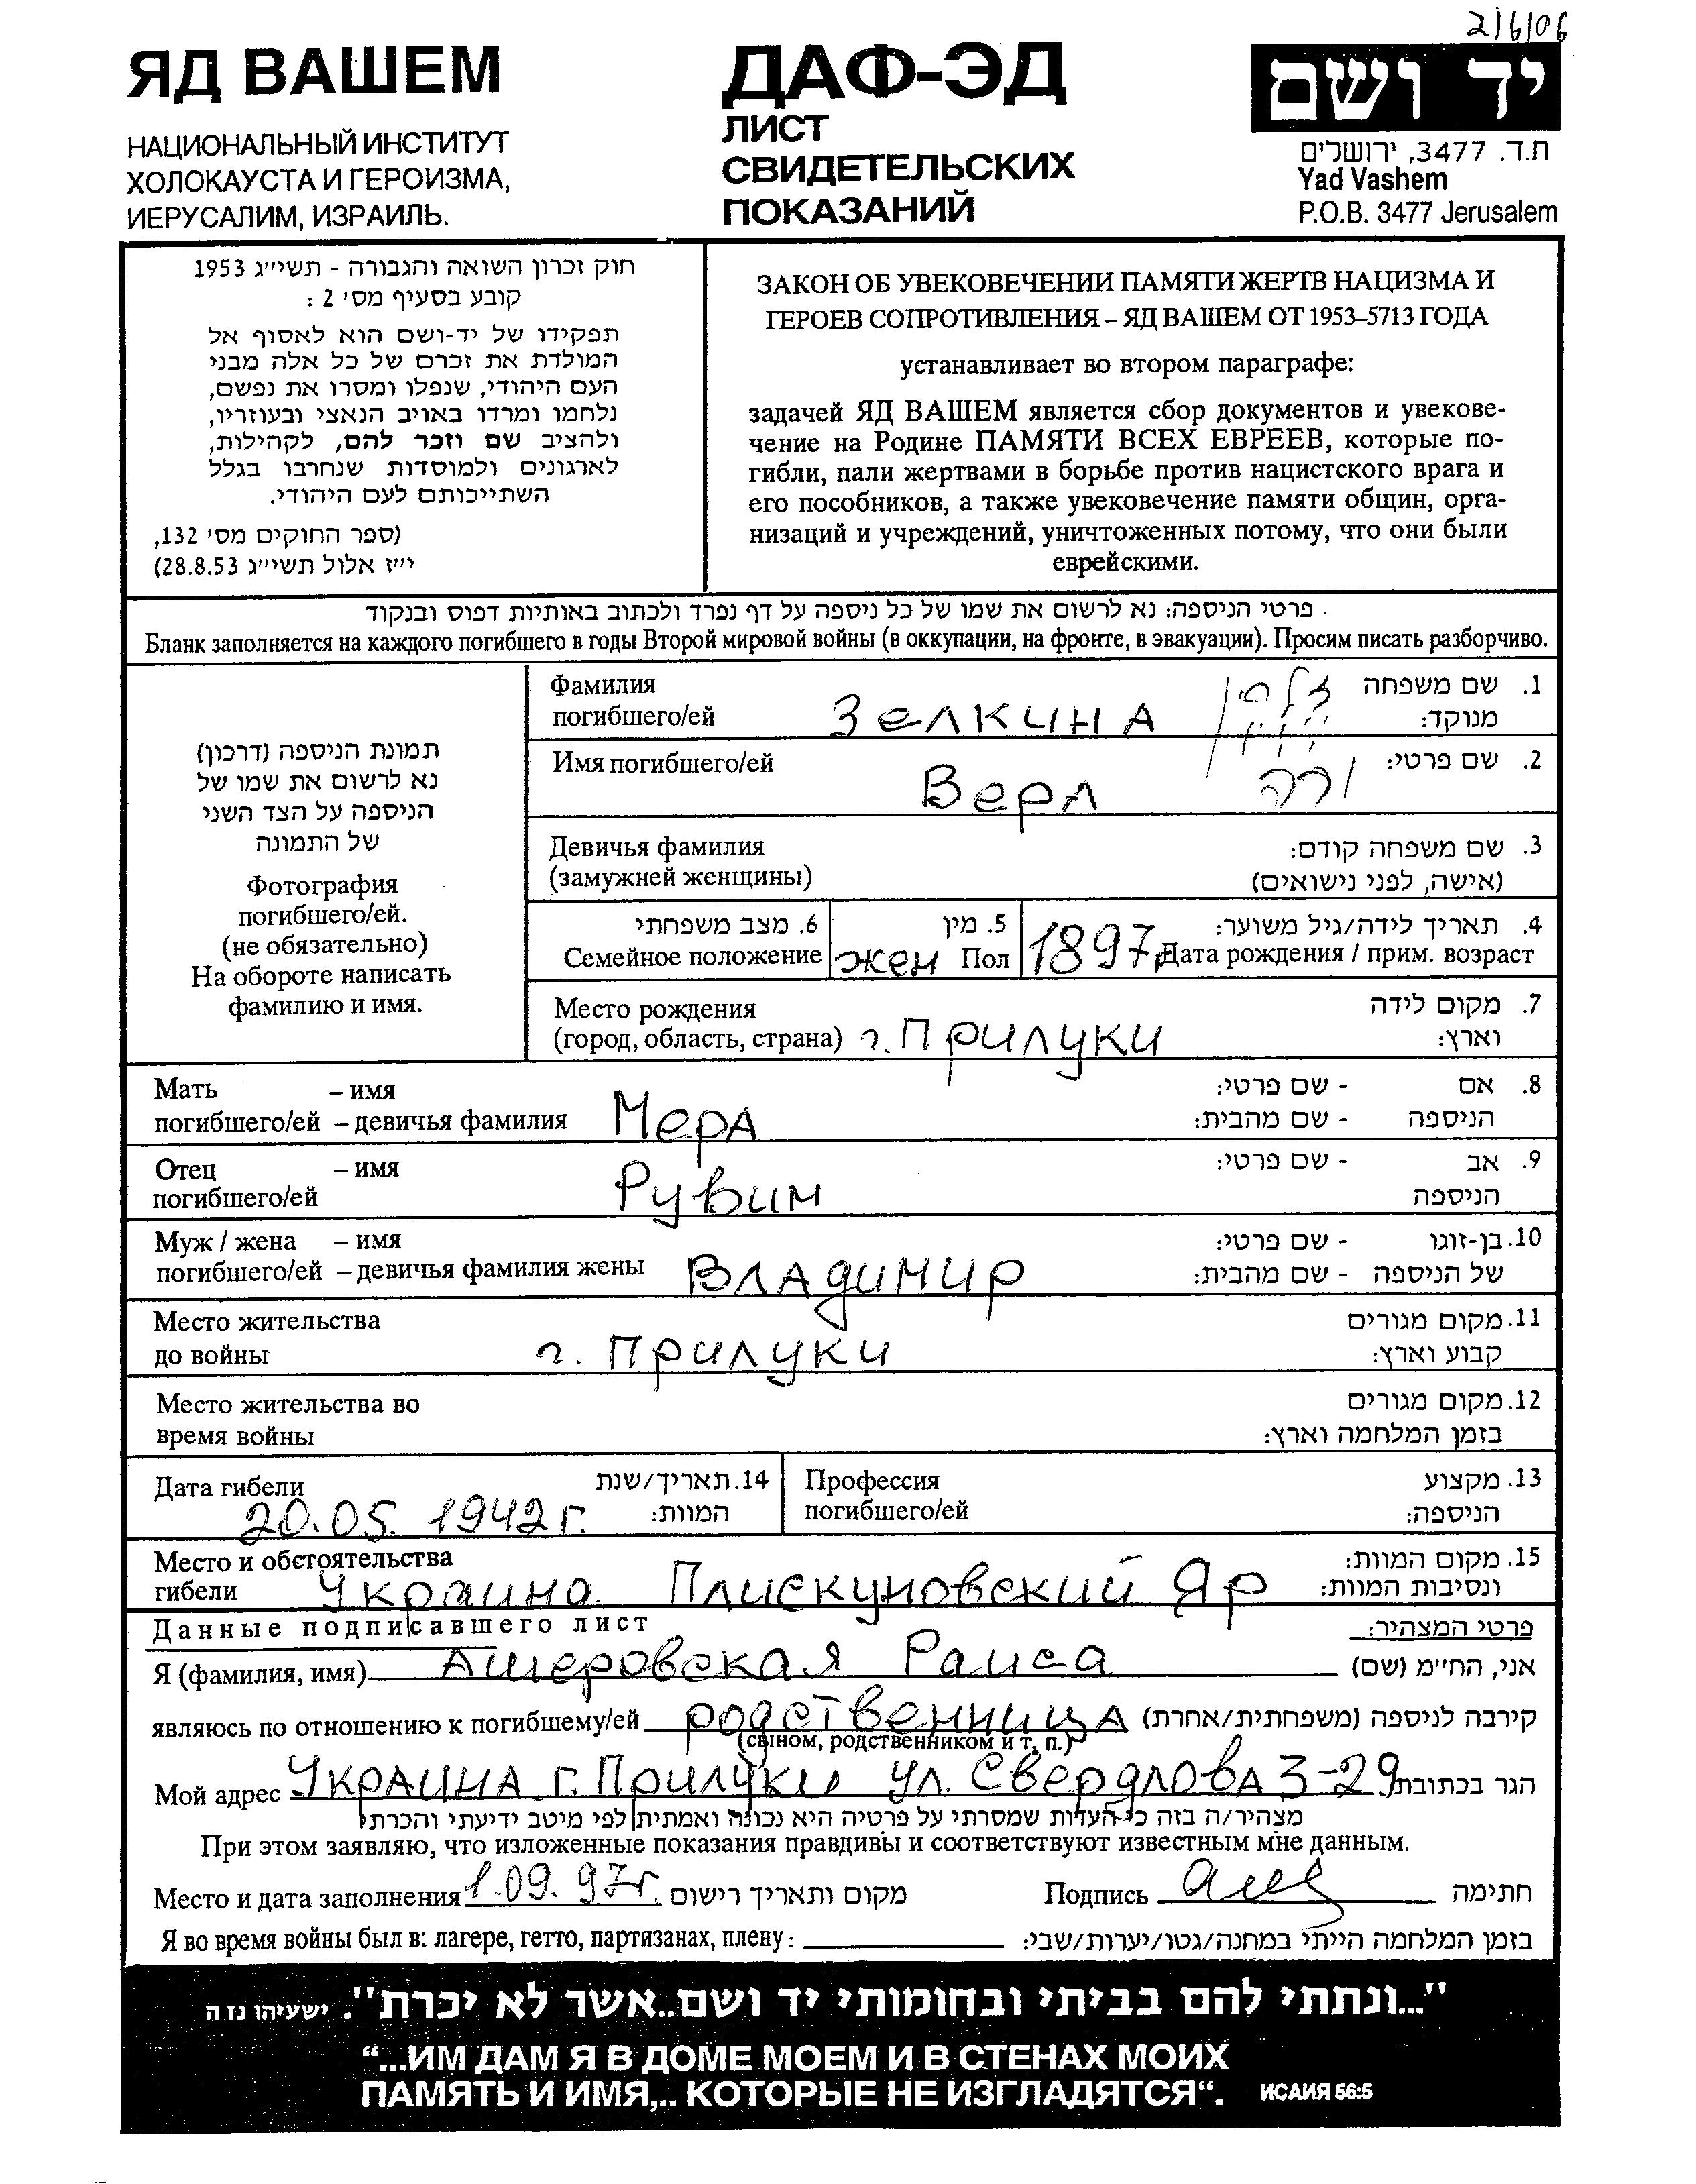 2/6/06
ЯД ВАШЕМ
НАЦИОНАЛЬНЫЙ ИНСТИТУТ
ХОЛОКАУСТА И ГЕРОИЗМА,
ИЕРУСАЛИМ, ИЗРАИЛЬ.
ДАФ-ЭД
ЛИСТ
СВИДЕТЕЛЬСКИХ
ПОКАЗАНИЙ
יד ושם
ת.ד. 3477, ירושלים
Yad Vashem
P.O.B. 3477 Jerusalem
חוק זכרון השואה והגבורה - תשי״ג 1953
קובע בסעיף מס׳ 2 :
תפקידו של יד-ושם הוא לאסוף אל
המולדת את זכרם של כל אלה מבני
העם היהודי, שנפלו ומסרו את נפשם,
נלחמו ומרדו באויב הנאצי ובעוזריו,
ולהציב שם וזכר להם, לקהילות,
לארגונים ולמוסדות שנחרבו בגלל
השתייכותם לעם היהודי.
(ספר החוקים מס׳ 132,
י״ז אלול תשי״ג 28.8.53)
ЗАКОН ОБ УВЕКОВЕЧЕНИИ ПАМЯТИ ЖЕРТВ НАЦИЗМА И
ГЕРОЕВ СОПРОТИВЛЕНИЯ – ЯД ВАШЕМ ОТ 1953–5713 ГОДА
устанавливает во втором параграфе:
задачей ЯД ВАШЕМ является сбор документов и увекове-
чение на Родине ПАМЯТИ ВСЕХ ЕВРЕЕВ, которые по-
гибли, пали жертвами в борьбе против нацистского врага и
его пособников, а также увековечение памяти общин, орга-
низаций и учреждений, уничтоженных потому, что они были
еврейскими.
פרטי הניספה: נא לרשום את שמו של כל ניספה על דף נפרד ולכתוב באותיות דפוס ובנקוד
Бланк заполняется на каждого погибшего в годы Второй мировой войны (в оккупации, на фронте, в эвакуации). Просим писать разборчиво.
תמונת הניספה (דרכון)
נא לרשום את שמו של
הניספה על הצד השני
של התמונה
Фотография
погибшего/ей.
(не обязательно)
На обороте написать
фамилию и имя.
Фамилия 1. שם משפחה
погибшего/ей ЗЕЛКИНА מנוקד:
Имя погибшего/ей 2. שם פרטי:
Вера ורה
Девичья фамилия 3. שם משפחה קודם:
(замужней женщины) (אישה, לפני נישואים)
6. מצב משפחתי 5. מין 4. תאריך לידה/גיל משוער:
Семейное положение жен Пол 1897 Дата рождения / прим. возраст
Место рождения 7. מקום לידה
(город, область, страна) г. Прилуки וארץ:
Мать – имя 8. אם - שם פרטי:
погибшего/ей – девичья фамилия Мера הניספה - שם מהבית:
Отец – имя 9. אב - שם פרטי:
погибшего/ей Рувим הניספה
Муж / жена – имя 10. בן-זוגו - שם פרטי:
погибшего/ей – девичья фамилия жены Владимир של הניספה - שם מהבית:
Место жительства 11. מקום מגורים
до войны г. Прилуки קבוע וארץ:
Место жительства во 12. מקום מגורים
время войны בזמן המלחמה וארץ:
Дата гибели 14. תאריך/שנת Профессия 13. מקצוע
20.05. 1942 г. המוות: погибшего/ей הניספה:
Место и обстоятельства 15. מקום המוות:
гибели Украина Плискуновский Яр ונסיבות המוות:
Данные подписавшего лист פרטי המצהיר:
Я (фамилия, имя) Ашеровская Раиса אני, החי״מ (שם)
являюсь по отношению к погибшему/ей родственница קירבה לניספה (משפחתית/אחרת)
(сыном, родственником и т, п.)
Мой адрес Украина г. Прилуки ул. Свердлова 3-29 הגר בכתובת
מצהיר/ה בזה כי העדות שמסרתי על פרטיה היא נכונה ואמתית לפי מיטב ידיעתי והכרתי
При этом заявляю, что изложенные показания правдивы и соответствуют известным мне данным.
Место и дата заполнения 1.09.97г. מקום ותאריך רישום Подпись חתימה
Я во время войны был в: лагере, гетто, партизанах, плену : בזמן המלחמה הייתי במחנה/גטו/יערות/שבי:
"...ונתתי להם בביתי ובחומותי יד ושם..אשר לא יכרת". ישעיהו נז ה
“...ИМ ДАМ Я В ДОМЕ МОЕМ И В СТЕНАХ МОИХ
ПАМЯТЬ И ИМЯ,.. КОТОРЫЕ НЕ ИЗГЛАДЯТСЯ“. ИСАИЯ 56:5